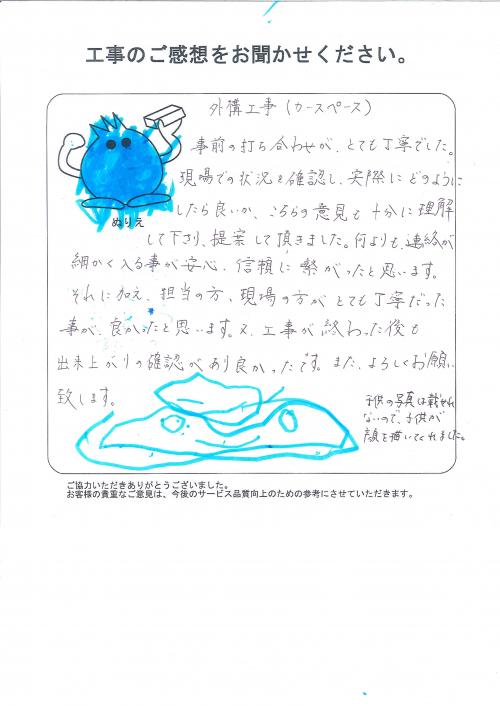 工事のご感想をお聞かせください。
外構工事（カースペース）
事前の打ち合わせが、とても丁寧でした。
現場での状況を確認し、実際にどのように
したら良いか、こちらの意見も十分に理解
ぬりえ
して下さり、提案して頂きました。何よりも、連絡が
細かく入る事が安心、信頼に繋がったと思います。
それに加え、担当の方、現場の方がとても丁寧だった
事が、良かったと思います。又、工事が終わった後も
出来上がりの確認があり良かったです。また、よろしくお願い
致します。
子供の写真は載せれ
ないので、子供が
顔を描いてくれました。
ご協力いただきありがとうございました。
お客様の貴重なご意見は、今後のサービス品質向上のための参考にさせていただきます。